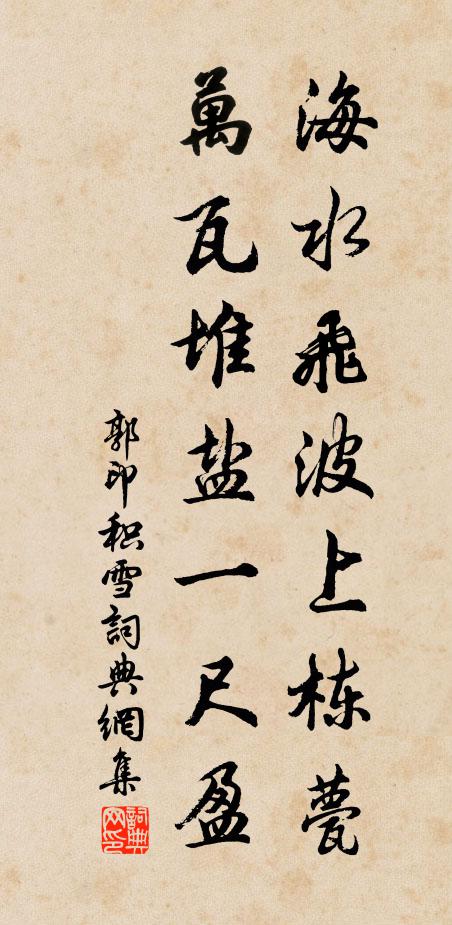 海水飛波上栋甍
萬瓦堆盐一尺盈
郭印积雪詞典網集
詞典网印